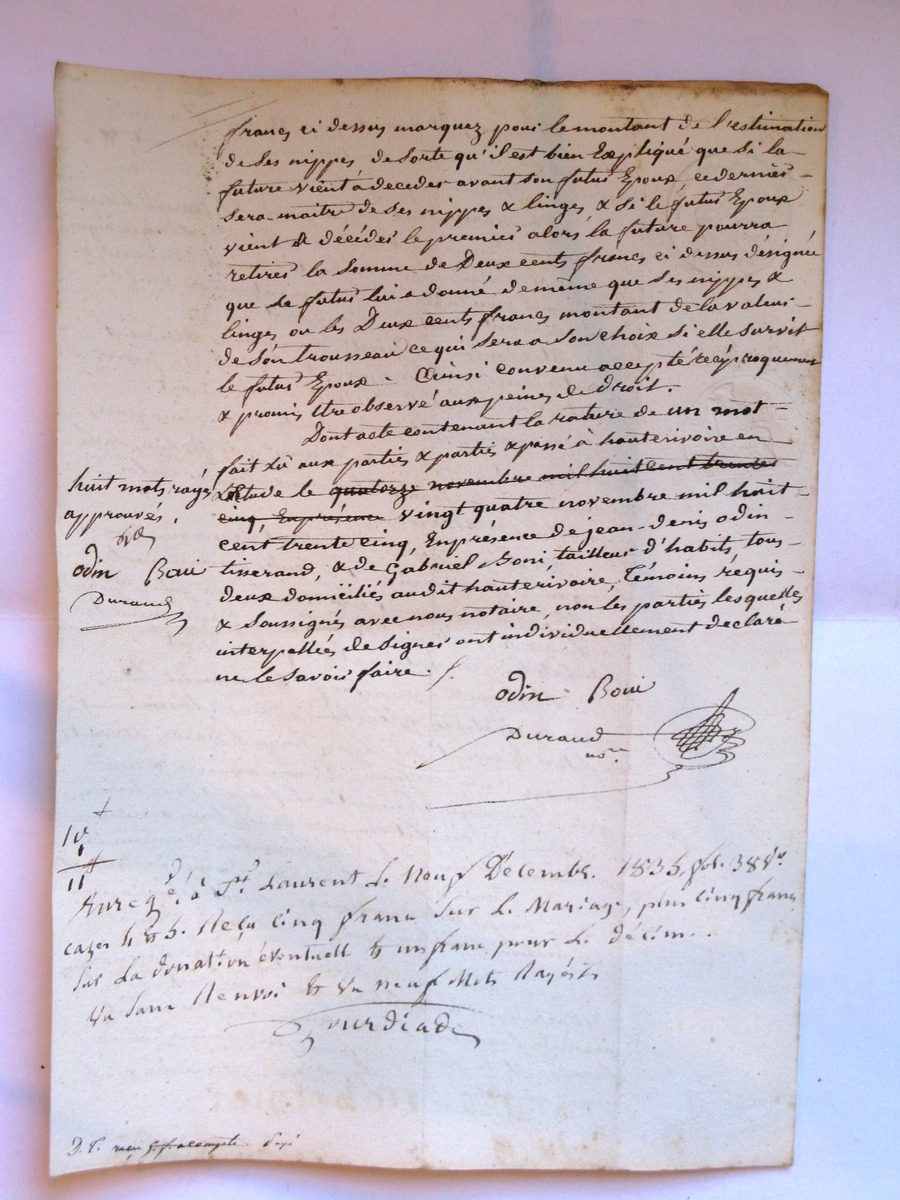 francs ci dessus marquez pour le montant de l'estimation
de ses nippes de sorte qu'il est bien Expliqué que si la
future vient à decedes avant son futus Epoux, ce dernies
sera maitre de ses nippes & linges & si le futus Epoux
vient de décédes le premies alors la future pourra
retires la somme de Deux cents francs ci dessus désignée
que le futus lui a donné de même que ses nippes &
linges ou les Deux cents francs montant de la valeus
de son trousseau ce qui sera a son choix si elle survit
le futus Epoux. Ainsi convenu accepté & réciproquement
& promis être observé aux peines de droit.
Dont acte contenant la rature de un mot
fait lu aux parties & parties & passé à hauterivoire en
L'Etude le quatorze novembre mil huit cent trente
cinq, En présence vingt quatre novembre mil huit
cent trente cinq, En présence de jean-denis odin
tisserand, & de Gabriel Boni, tailleus d'habits, tous
deux domiciliés audit hauterivoire, Témoins réquis
& soussignés avec nous notaire, non les parties lesquelles
interpellées de signes ont individuellement declaré
ne le savois faire.
huit mots rayés
approuvés.
odin Boni
Durand
odin Boni
Durand
nore
10
11
Enregé. à St. Laurent le Neuf Décembre 1835, fol. 38 vo.
cazes 4 & 5. Reçu cinq francs sur le Mariage, plus cinq francs
sur la donation éventuelle & un franc pour le décime.
Vu sans Renvoi & Vu neuf Mots Rayés
D. P. reçu 5 f. acompte. Payé